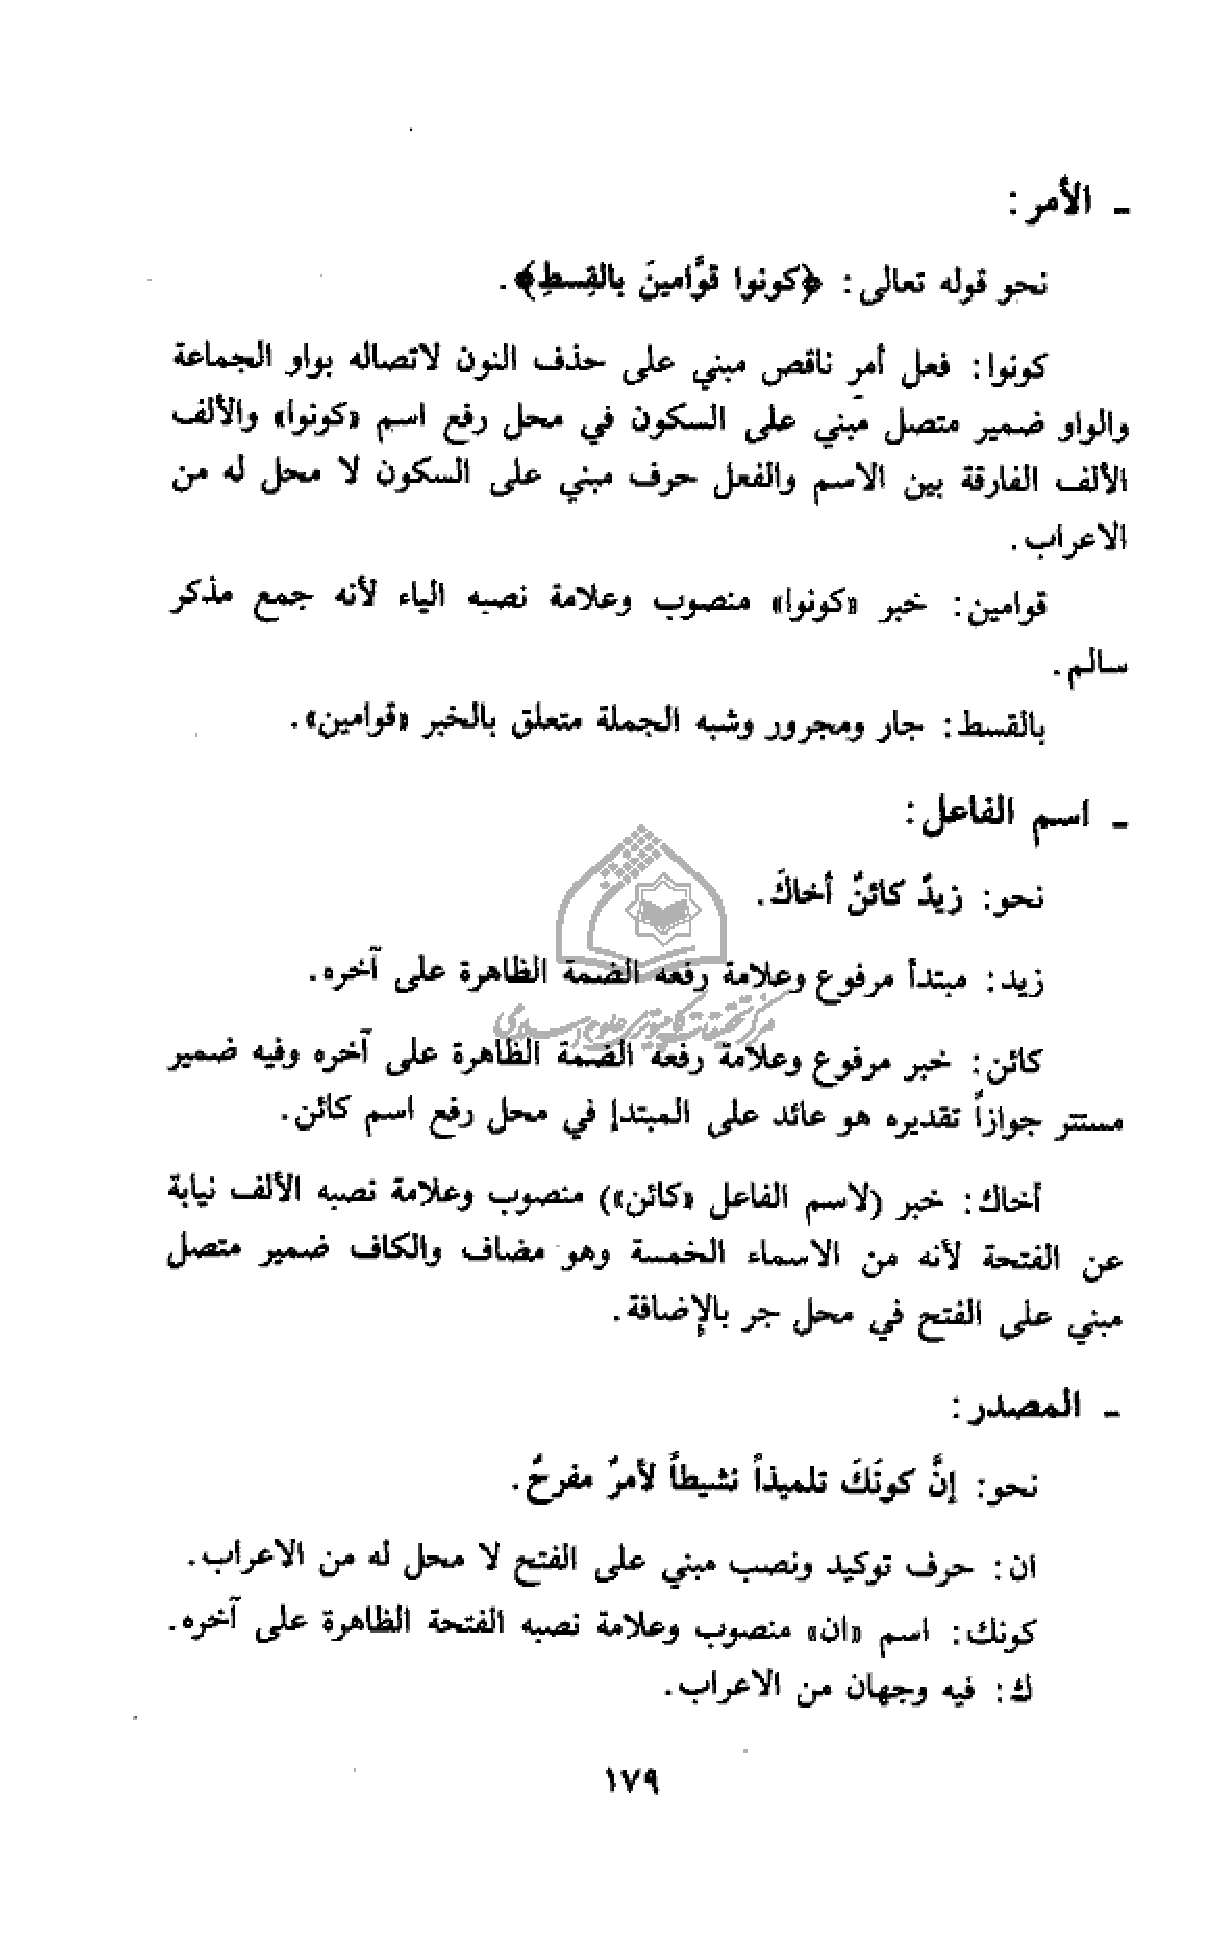 ـ الأمر:
نحو قوله تعالى: ﴿كونوا قوَّامينَ بالقِسطِ﴾.
كونوا: فعل أمر ناقص مبني على حذف النون لاتصاله بواو الجماعة
والواو ضمير متصل مبني على السكون في محل رفع اسم «كونوا» والألف
الألف الفارقة بين الاسم والفعل حرف مبني على السكون لا محل له من
الاعراب.
قوامين: خبر «كونوا» منصوب وعلامة نصبه الياء لأنه جمع مذكر
سالم.
بالقسط: جار ومجرور وشبه الجملة متعلق بالخبر «قوامين».
ـ اسم الفاعل:
نحو: زيدٌ كائنٌ أخاكَ.
زيد: مبتدأ مرفوع وعلامة رفعه الضمة الظاهرة على آخره.
كائن: خبر مرفوع وعلامة رفعه الضمة الظاهرة على آخره وفيه ضمير
مستتر جوازاً تقديره هو عائد على المبتدإ في محل رفع اسم كائن.
أخاك: خبر (لاسم الفاعل «كائن») منصوب وعلامة نصبه الألف نيابة
عن الفتحة لأنه من الاسماء الخمسة وهو مضاف والكاف ضمير متصل
مبني على الفتح في محل جر بالإضافة.
ـ المصدر:
نحو: إنَّ كونَكَ تلميذاً نشيطاً لأمرٌ مفرحٌ.
ان: حرف توكيد ونصب مبني على الفتح لا محل له من الاعراب.
كونك: اسم «ان» منصوب وعلامة نصبه الفتحة الظاهرة على آخره.
ك: فيه وجهان من الاعراب.
١٧٩